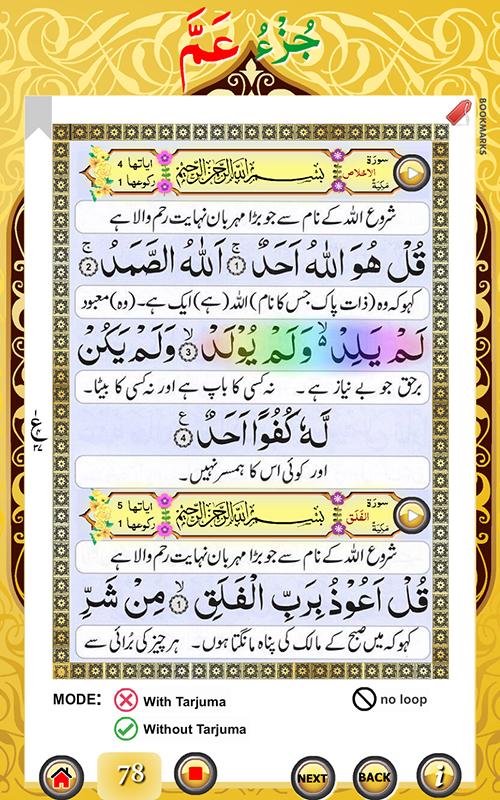 جُزْءُ عَمَّ
BOOKMARKS
سورة الاخلاص مكية
بِسْمِ اللهِ الرَّحْمٰنِ الرَّحِيْمِ
اٰیاتها 4
رکوعها 1
شروع اللہ کے نام سے جو بڑا مہربان نہایت رحم والا ہے
قُلْ هُوَ اللّٰهُ اَحَدٌ ۚ 1 اَللّٰهُ الصَّمَدُ ۚ 2
کہو کہ وہ (ذات پاک جس کا نام) اللہ (ہے) ایک ہے۔ (وہ) معبود
لَمْ يَلِدْ ۙ وَلَمْ يُوْلَدْ ۙ 3 وَلَمْ يَكُنْ
برحق جو بے نیاز ہے۔ نہ کسی کا باپ ہے اور نہ کسی کا بیٹا۔
لَّهٗ كُفُوًا اَحَدٌ 4
ع
اور کوئی اس کا ہمسر نہیں۔
سورة الفلق مكية
بِسْمِ اللهِ الرَّحْمٰنِ الرَّحِيْمِ
اٰیاتها 5
رکوعها 1
شروع اللہ کے نام سے جو بڑا مہربان نہایت رحم والا ہے
قُلْ اَعُوْذُ بِرَبِّ الْفَلَقِ ۙ 1 مِنْ شَرِّ
کہو کہ میں صبح کے مالک کی پناہ مانگتا ہوں۔ ہر چیز کی برائی سے
MODE: With Tarjuma no loop
Without Tarjuma
78 NEXT BACK i